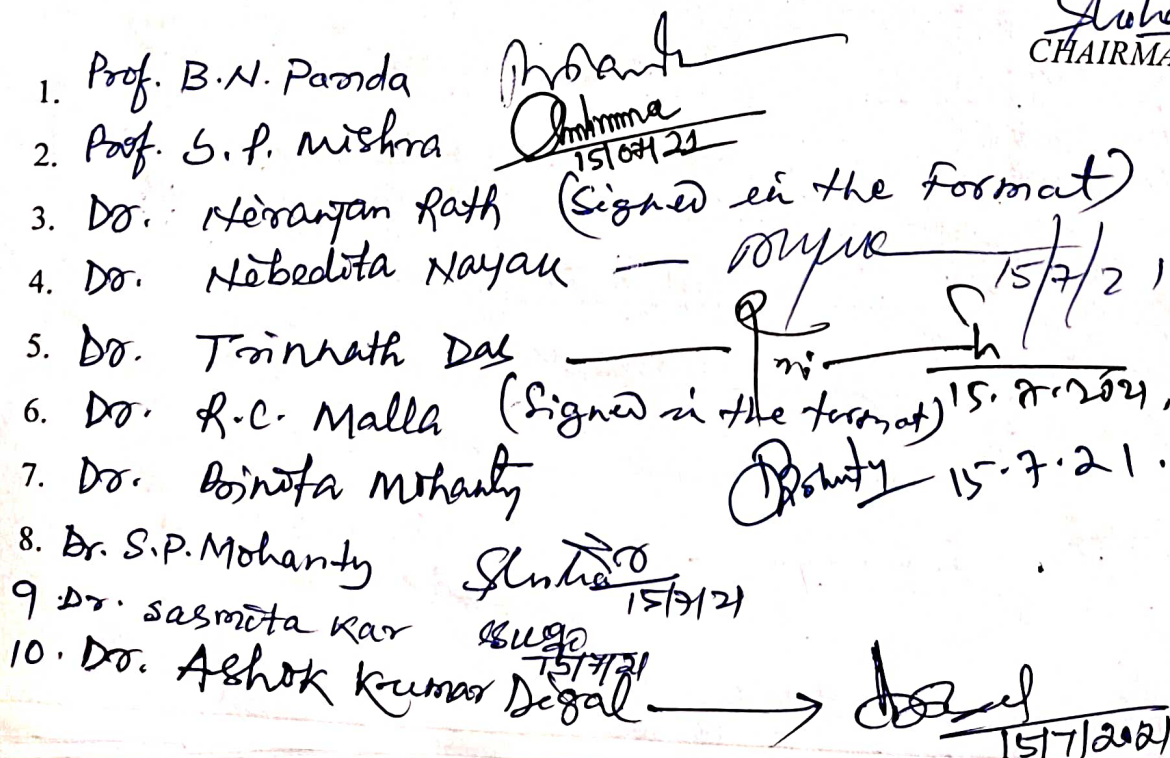 CHAIRMA
1. Prof. B.N. Panda
2. Prof. S.P. Mishra
15/07/21
3. Dr. Niranjan Rath (Signed in the Format)
4. Dr. Nibedita Nayak — 15/7/21
5. Dr. Trinnath Das
15.7.2021
6. Dr. R.C. Malla (Signed in the format)
7. Dr. Binota Mohanty 15.7.21.
8. Dr. S.P. Mohanty
15/7/21
9. Dr. Sasmita Kar
15/7/21
10. Dr. Ashok Kumar Digal
15/7/2021